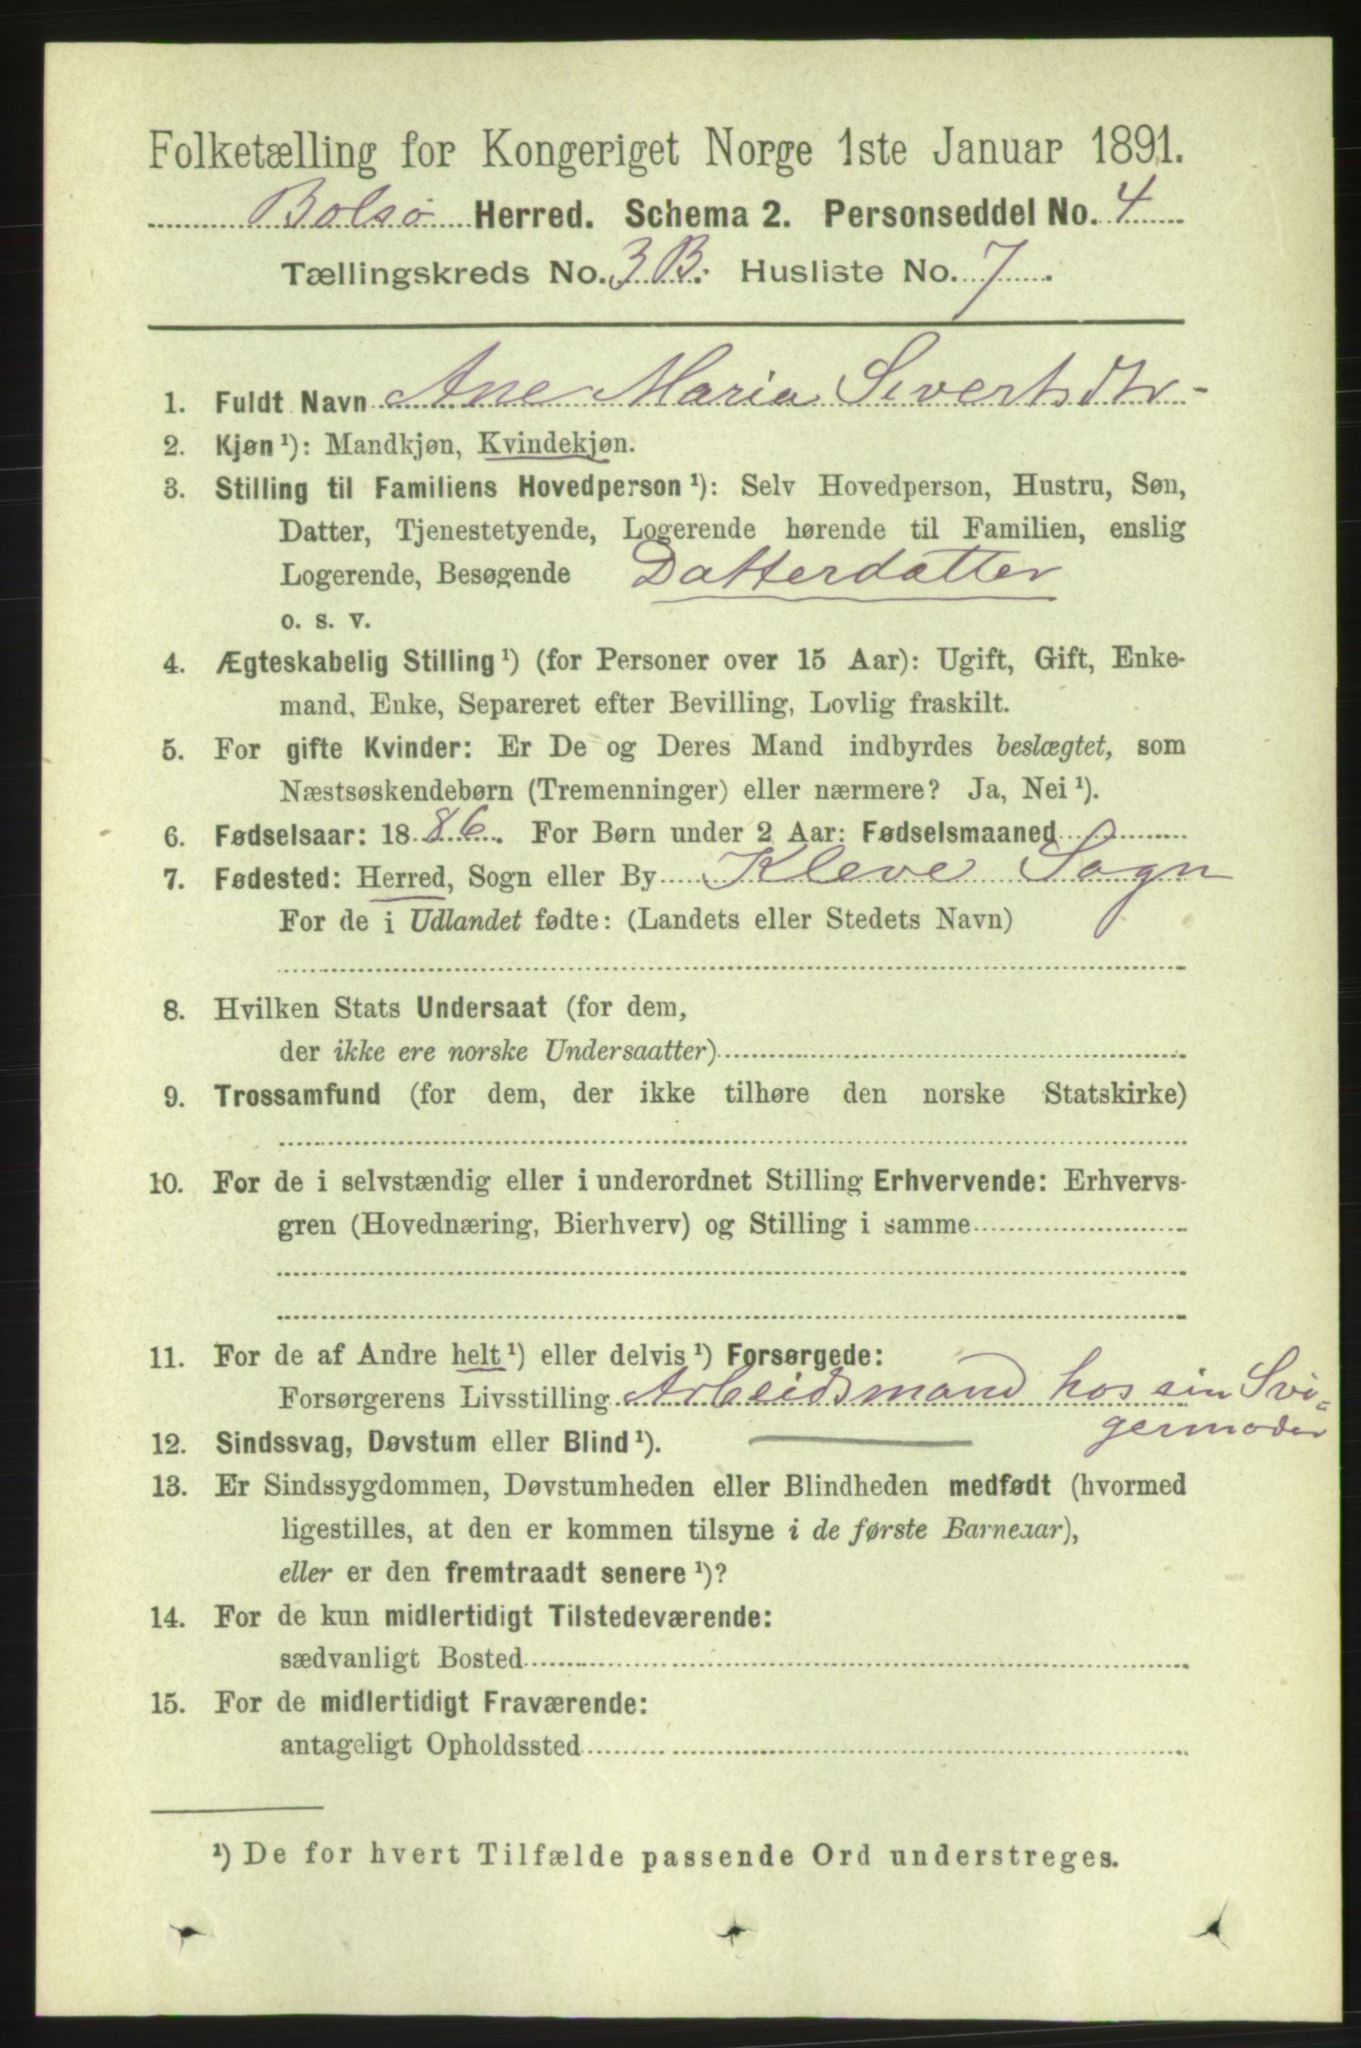 Folketælling for Kongeriget Norge 1ste Januar 1891.
Bolsø Herred. Schema 2. Personseddel No. 4
Tællingskreds No. 3 B. Husliste No. 7.
1. Fuldt Navn Ane Maria Sivertsdtr
2. Kjøn¹): Mandkjøn, Kvindekjøn.
3. Stilling til Familiens Hovedperson¹): Selv Hovedperson, Hustru, Søn,
Datter, Tjenestetyende, Logerende hørende til Familien, enslig
Logerende, Besøgende Datterdatter
o. s. v.
4. Ægteskabelig Stilling¹) (for Personer over 15 Aar): Ugift, Gift, Enke-
mand, Enke, Separeret efter Bevilling, Lovlig fraskilt.
5. For gifte Kvinder: Er De og Deres Mand indbyrdes beslægtet, som
Næstsøskendebørn (Tremenninger) eller nærmere? Ja, Nei¹).
6. Fødselsaar: 1886. For Børn under 2 Aar: Fødselsmaaned
7. Fødested: Herred, Sogn eller By Kleve Sogn
For de i Udlandet fødte: (Landets eller Stedets Navn)
8. Hvilken Stats Undersaat (for dem,
der ikke ere norske Undersaatter)
9. Trossamfund (for dem, der ikke tilhøre den norske Statskirke)
10. For de i selvstændig eller i underordnet Stilling Erhvervende: Erhvervs-
gren (Hovednæring, Bierhverv) og Stilling i samme
11. For de af Andre helt¹) eller delvis¹) Forsørgede:
Forsørgerens Livsstilling Arbeidsmand hos sin Svi-
germoder
12. Sindssvag, Døvstum eller Blind¹).
13. Er Sindssygdommen, Døvstumheden eller Blindheden medfødt (hvormed
ligestilles, at den er kommen tilsyne i de første Barneaar),
eller er den fremtraadt senere¹)?
14. For de kun midlertidigt Tilstedeværende:
sædvanligt Bosted
15. For de midlertidigt Fraværende:
antageligt Opholdssted
¹) De for hvert Tilfælde passende Ord understreges.